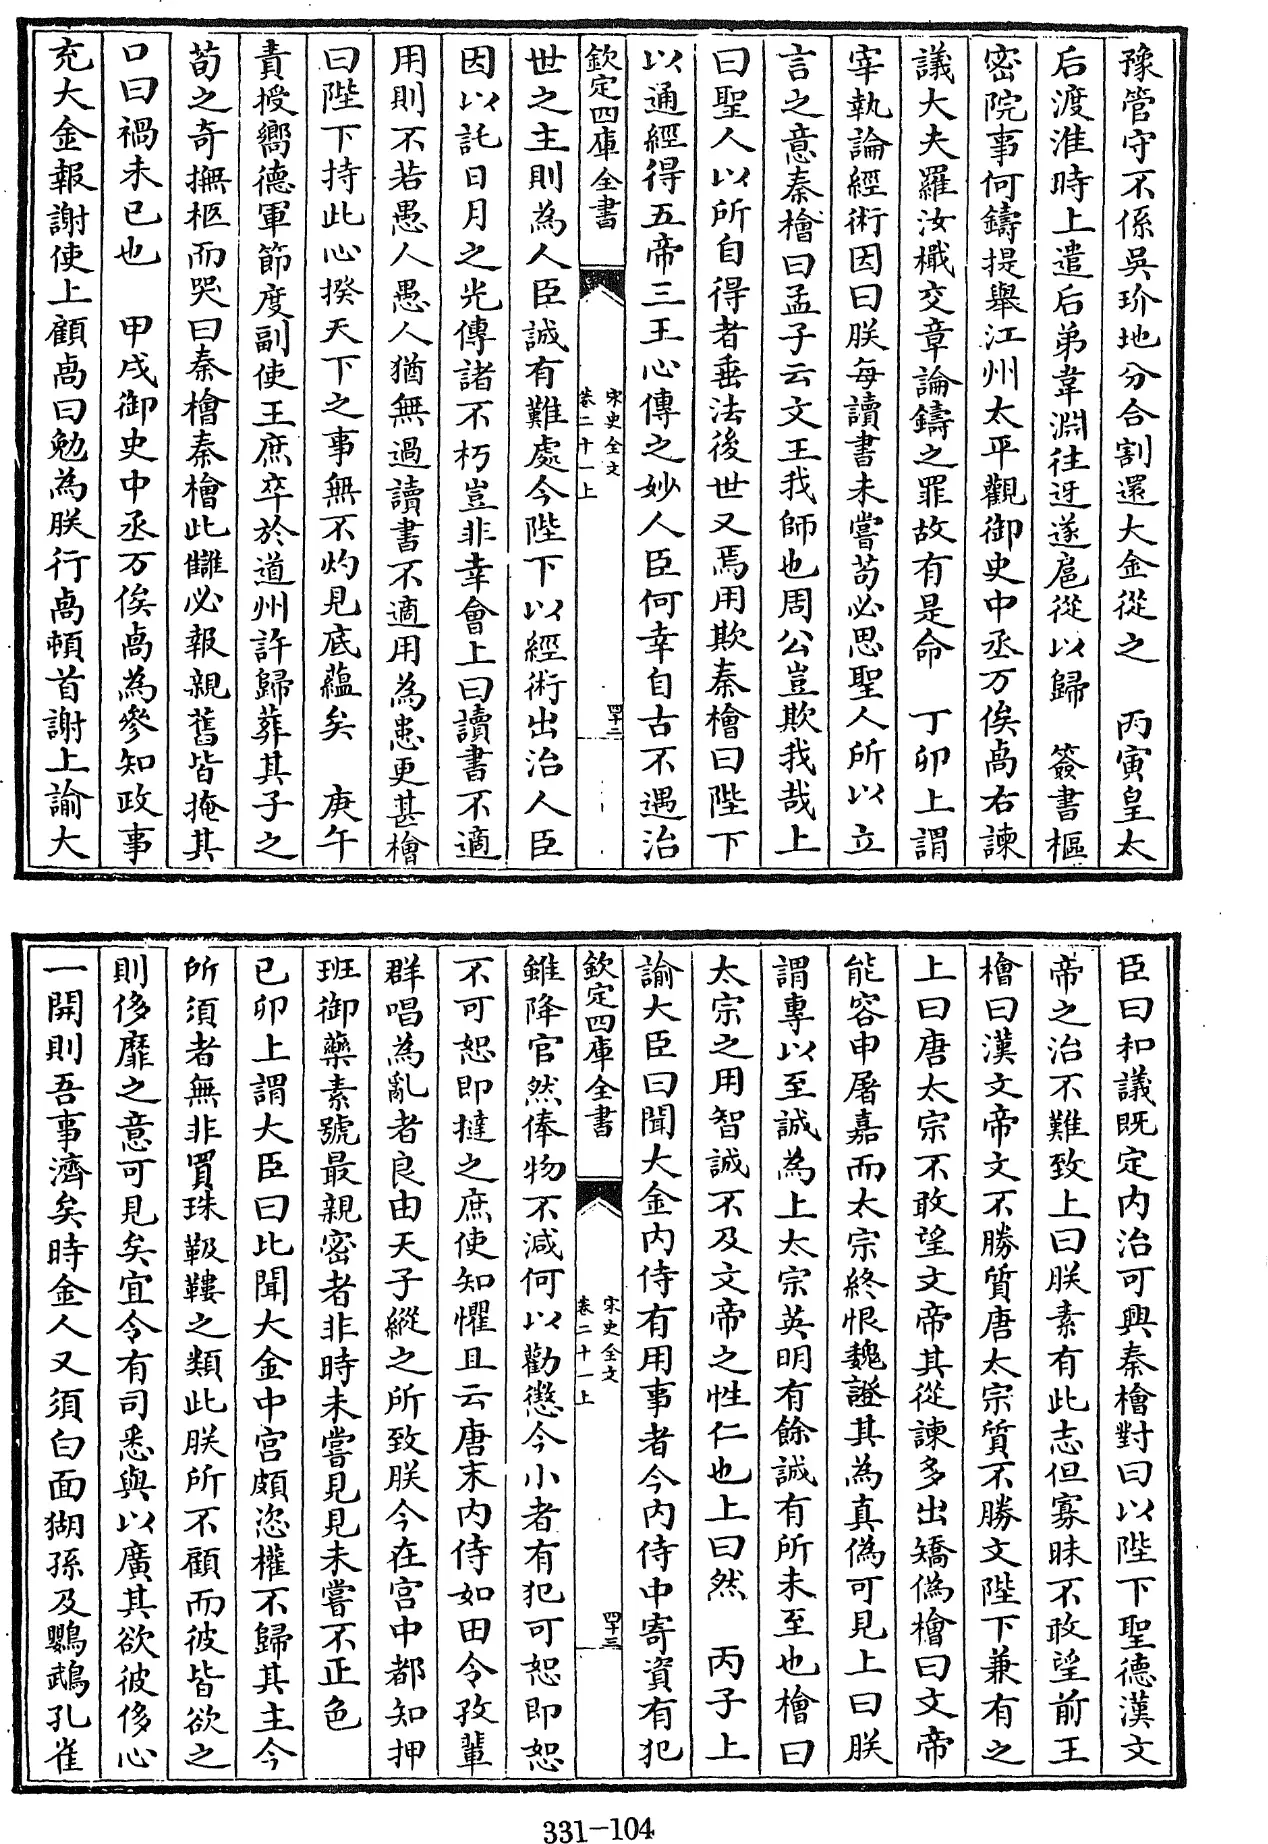 豫管守不係吳玠地分合割還大金從之　丙寅皇太
后渡淮時上遣后弟韋淵往迓遂扈從以歸　簽書樞
密院事何鑄提舉江州太平觀御史中丞万俟卨右諫
議大夫羅汝檝交章論鑄之罪故有是命　丁卯上謂
宰執論經術因曰朕每讀書未嘗苟必思聖人所以立
言之意秦檜曰孟子云文王我師也周公豈欺我哉上
曰聖人以所自得者垂法後世又焉用欺秦檜曰陛下
以通經得五帝三王心傳之妙人臣何幸自古不遇治
欽定四庫全書
宋史全文
卷二十一上
四十二
世之主則為人臣誠有難處今陛下以經術出治人臣
因以託日月之光傳諸不朽豈非幸會上曰讀書不適
用則不若愚人愚人猶無過讀書不適用為患更甚檜
曰陛下持此心揆天下之事無不灼見底蘊矣　庚午
責授嚮德軍節度副使王庶卒於道州許歸葬其子之
荀之奇撫柩而哭曰秦檜秦檜此讎必報親舊皆掩其
口曰禍未已也　甲戌御史中丞万俟卨為參知政事
充大金報謝使上顧卨曰勉為朕行卨頓首謝上諭大
臣曰和議既定内治可興秦檜對曰以陛下聖德漢文
帝之治不難致上曰朕素有此志但寡昧不敢望前王
檜曰漢文帝文不勝質唐太宗質不勝文陛下兼有之
上曰唐太宗不敢望文帝其從諫多出矯偽檜曰文帝
能容申屠嘉而太宗終恨魏證其為真偽可見上曰朕
謂專以至誠為上太宗英明有餘誠有所未至也檜曰
太宗之用智誠不及文帝之性仁也上曰然　丙子上
諭大臣曰聞大金内侍有用事者今内侍中寄資有犯
欽定四庫全書
宋史全文
卷二十一上
四十三
雖降官然俸物不減何以勸懲今小者有犯可恕即恕
不可恕即撻之庶使知懼且云唐末内侍如田令孜輩
群唱為亂者良由天子縱之所致朕今在宫中都知押
班御藥素號最親密者非時未嘗見見未嘗不正色
已卯上謂大臣曰比聞大金中宮頗恣權不歸其主今
所須者無非買珠靸鞻之類此朕所不顧而彼皆欲之
則侈靡之意可見矣宜令有司悉與以廣其欲彼侈心
一開則吾事濟矣時金人又須白面猢孫及鸚鵡孔雀
331-104